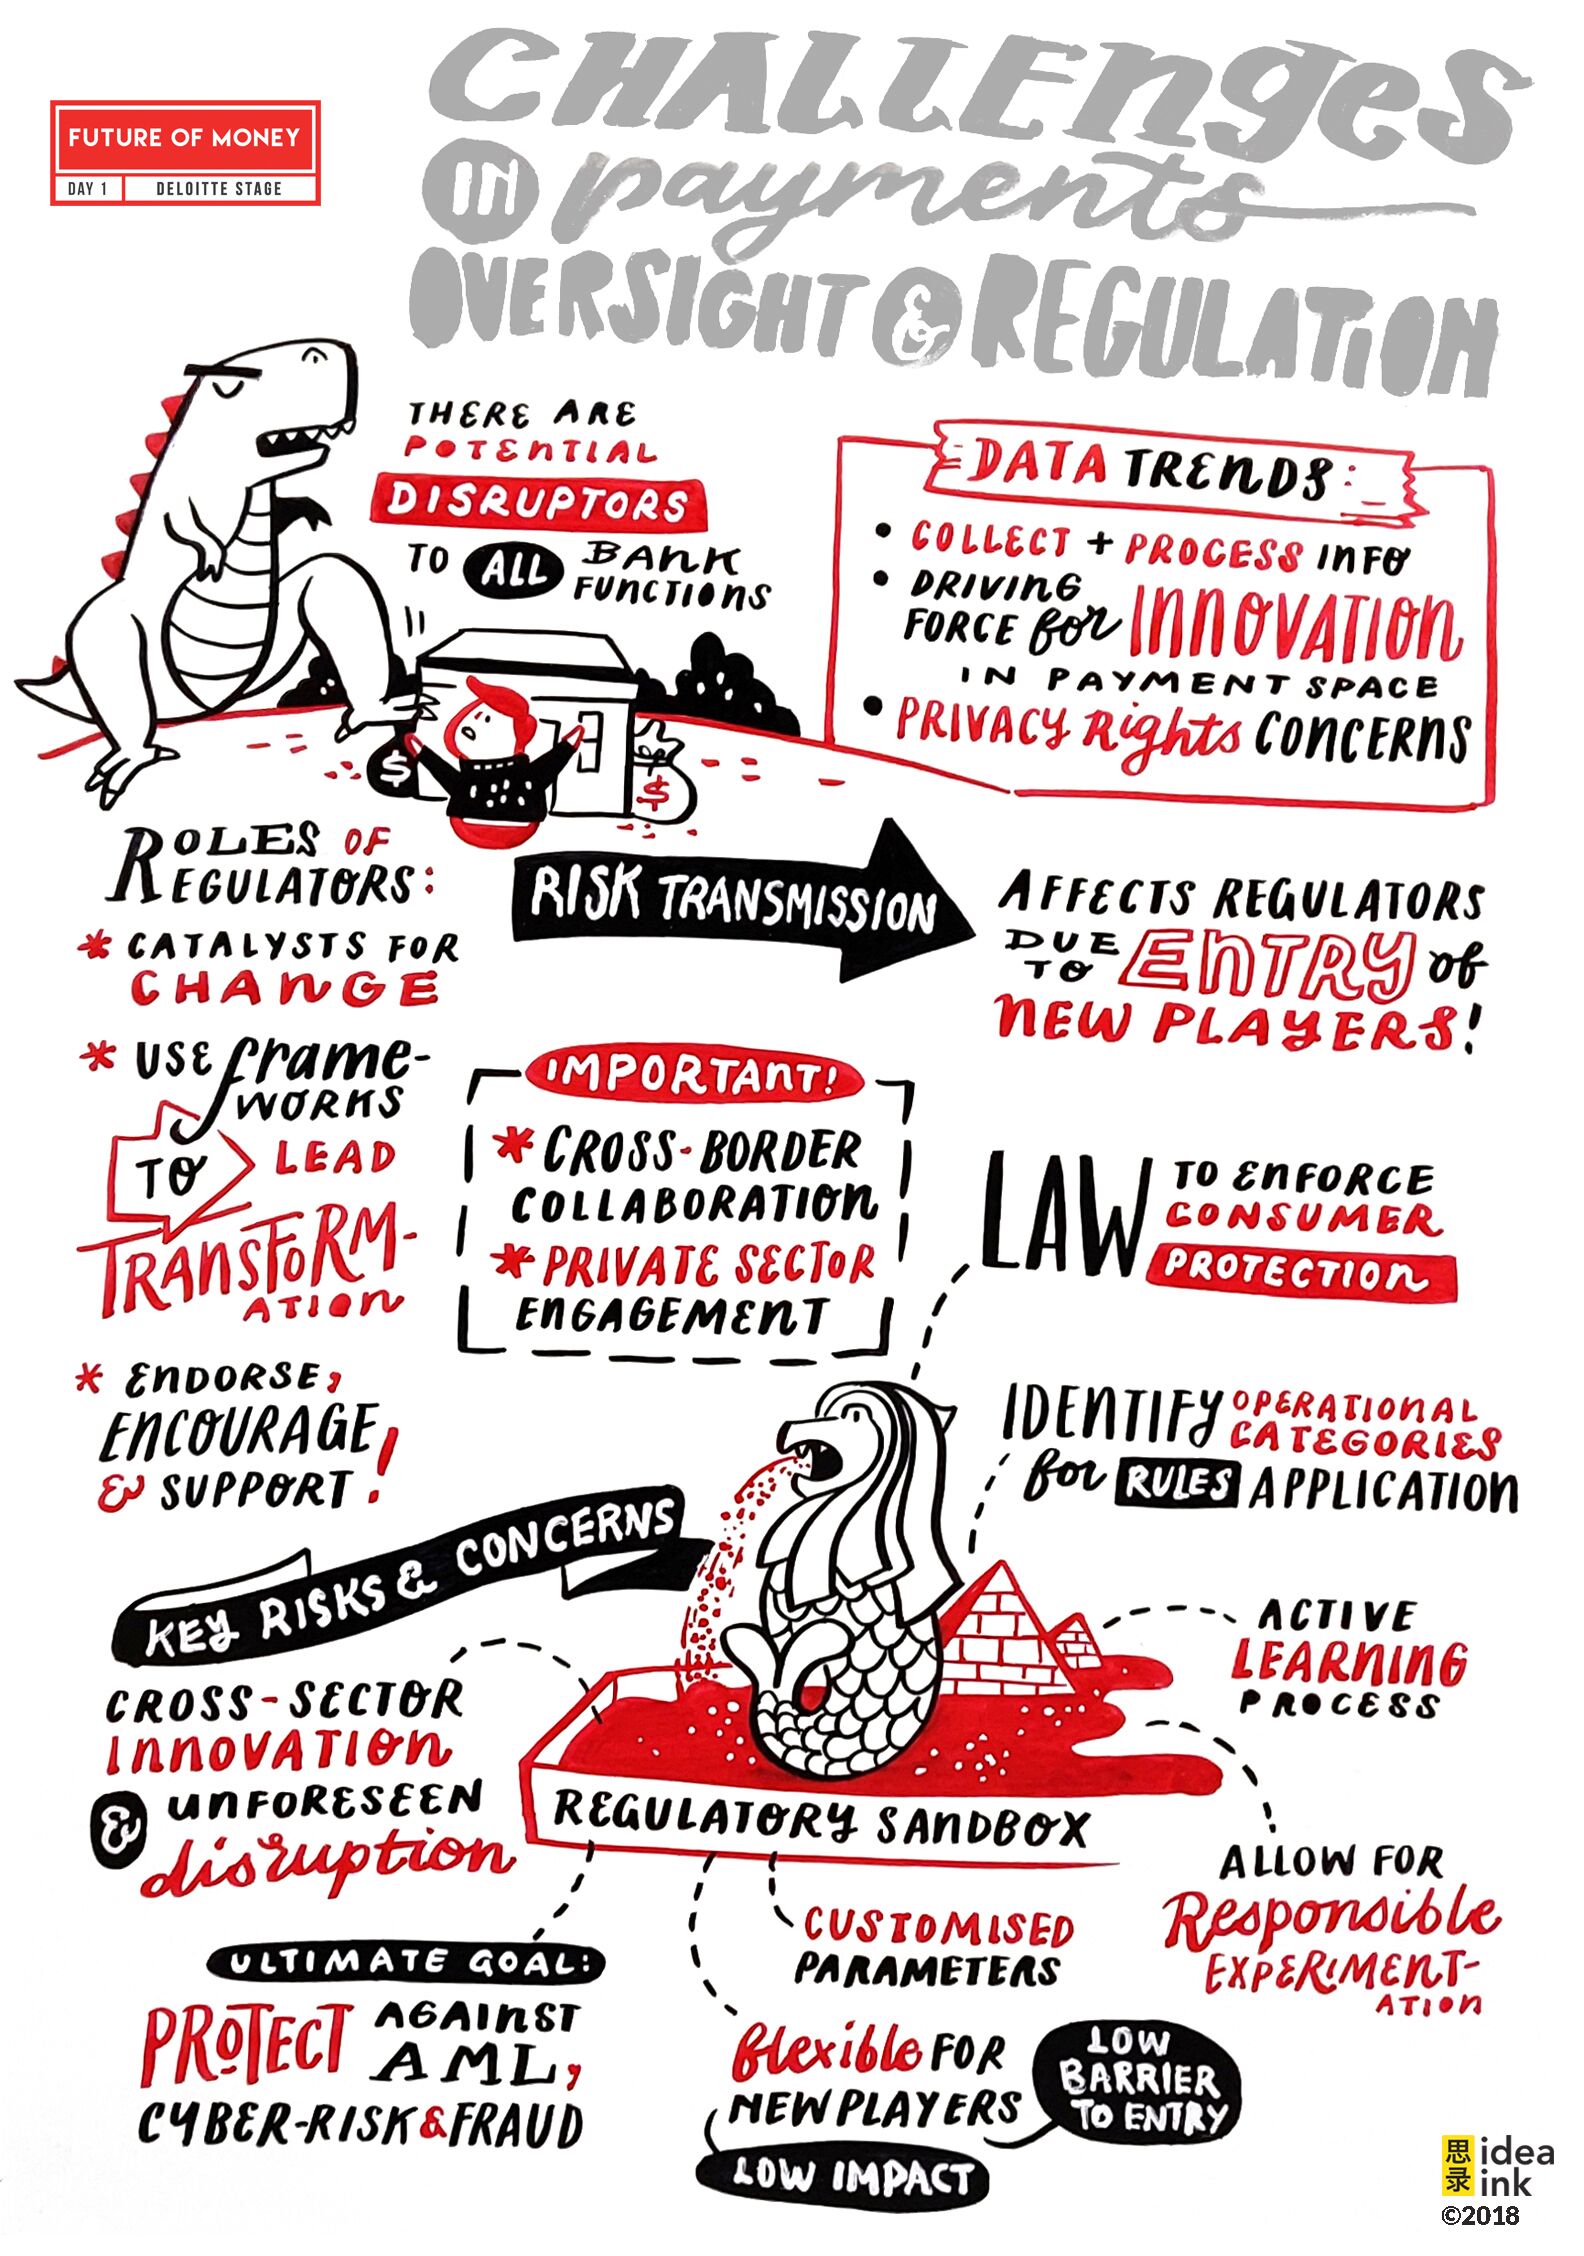 FUTURE OF MONEY
DAY 1 DELOITTE STAGE
CHALLENGES
IN payments
OVERSIGHT & REGULATION
THERE ARE
POTENTIAL
DISRUPTORS
TO ALL BANK
FUNCTIONS
DATA TRENDS:
• COLLECT + PROCESS INFO
• DRIVING
FORCE for INNOVATION
IN PAYMENT SPACE
• PRIVACY Rights CONCERNS
$
$
ROLES OF
REGULATORS:
* CATALYSTS FOR
CHANGE
* USE frame-
WORKS
TO LEAD
TRANSFORM-
ATION
* ENDORSE,
ENCOURAGE
& SUPPORT!
RISK TRANSMISSION
AFFECTS REGULATORS
DUE
TO ENTRY of
NEW PLAYERS!
IMPORTANT!
* CROSS-BORDER
COLLABORATION
* PRIVATE SECTOR
ENGAGEMENT
LAW TO ENFORCE
CONSUMER
PROTECTION
IDENTIFY OPERATIONAL
CATEGORIES
for RULES APPLICATION
KEY RISKS & CONCERNS
CROSS-SECTOR
INNOVATION
& UNFORESEEN
disruption
ACTIVE
LEARNING
PROCESS
REGULATORY SANDBOX
ALLOW FOR
Responsible
EXPERIMENT-
ATION
ULTIMATE GOAL:
PROTECT AGAINST
AML,
CYBER-RISK & FRAUD
CUSTOMISED
PARAMETERS
flexible FOR
NEW PLAYERS
LOW
BARRIER
TO ENTRY
LOW IMPACT
思录
idea
ink
©2018